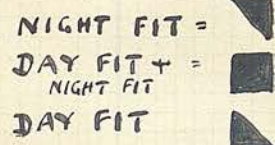 NIGHT FIT =
DAY FIT + =
NIGHT FIT
DAY FIT